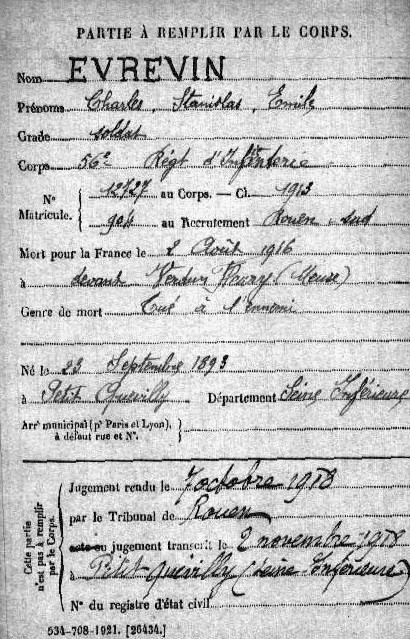 PARTIE À REMPLIR PAR LE CORPS.
Nom EVREVIN
Prénoms Charles, Stanislas, Emile
Grade soldat
Corps 56e Régt d'Infanterie
N° Matricule. 12727 au Corps. — Cl. 1913
904 au Recrutement Rouen sud
Mort pour la France le 2 Août 1916
à devant (Meuse)
Genre de mort Tué à l'ennemi
Né le 23 Septembre 1893
à Petit Quevilly Département Seine Inférieure
Arrt municipal (pr Paris et Lyon), à défaut rue et N°.
Cette partie n'est pas à remplir par le Corps.
Jugement rendu le 7 octobre 1918
par le Tribunal de Rouen
acte ou jugement transcrit le 2 novembre 1918
à Petit Quevilly (Seine Inférieure)
N° du registre d'état civil
534-708-1921. [26434.]